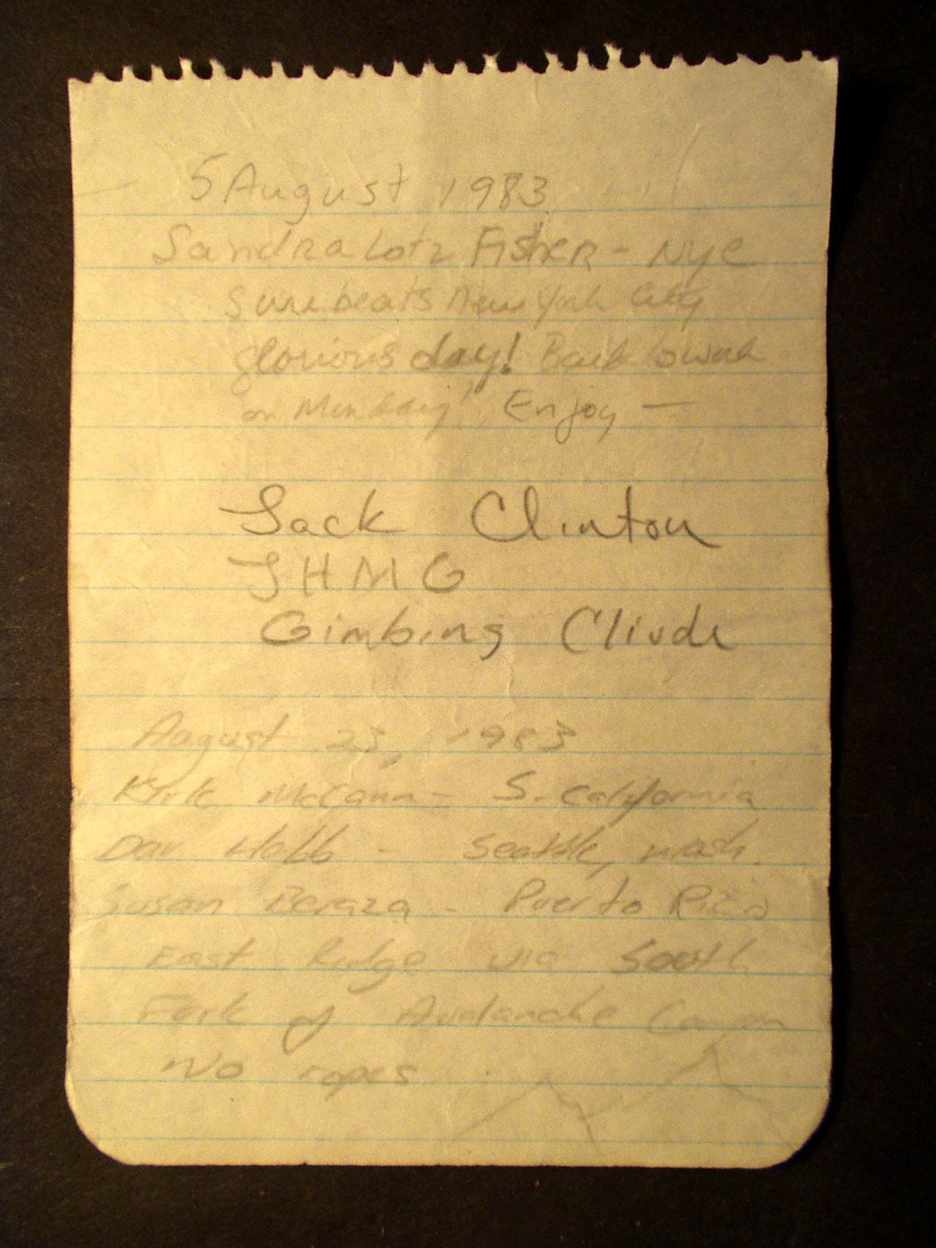 5 August 1983
Sandra Lotz Fisher - NYC
Sure beats New York City
glorious day! Back to work
on Monday! Enjoy —
Jack Clinton
JHMG
Gimbing Clivde
August 23, 1983
Kyrk McCann - S. California
Dav Hobb - Seattle, Wash.
Susan Beraza - Puerto Rico
East Ridge via South
Fork of Avalanche Canyon
No ropes